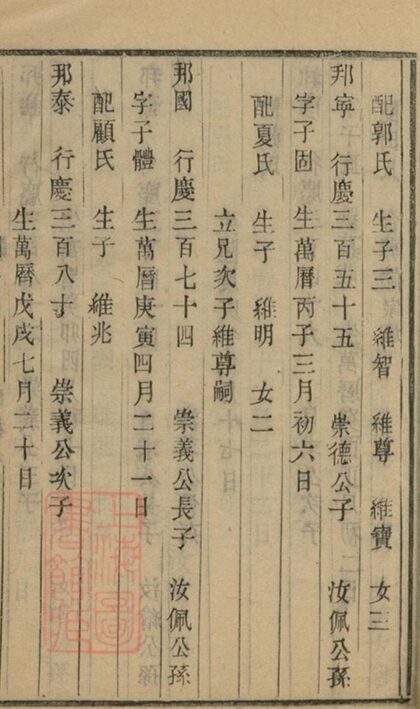 配郭氏 生子三 維智 維尊 維寶 女三
邦寧 行慶三百五十五 崇德公子 汝佩公孫
字子固 生萬曆丙子三月初六日
配夏氏 生子 維明 女二
立兄次子維尊嗣
邦國 行慶三百七十四 崇義公長子 汝佩公孫
字子體 生萬曆庚寅四月二十一日
配顧氏 生子 維兆
邦泰 行慶三百八十 崇義公次子
生萬曆戊戌七月二十日